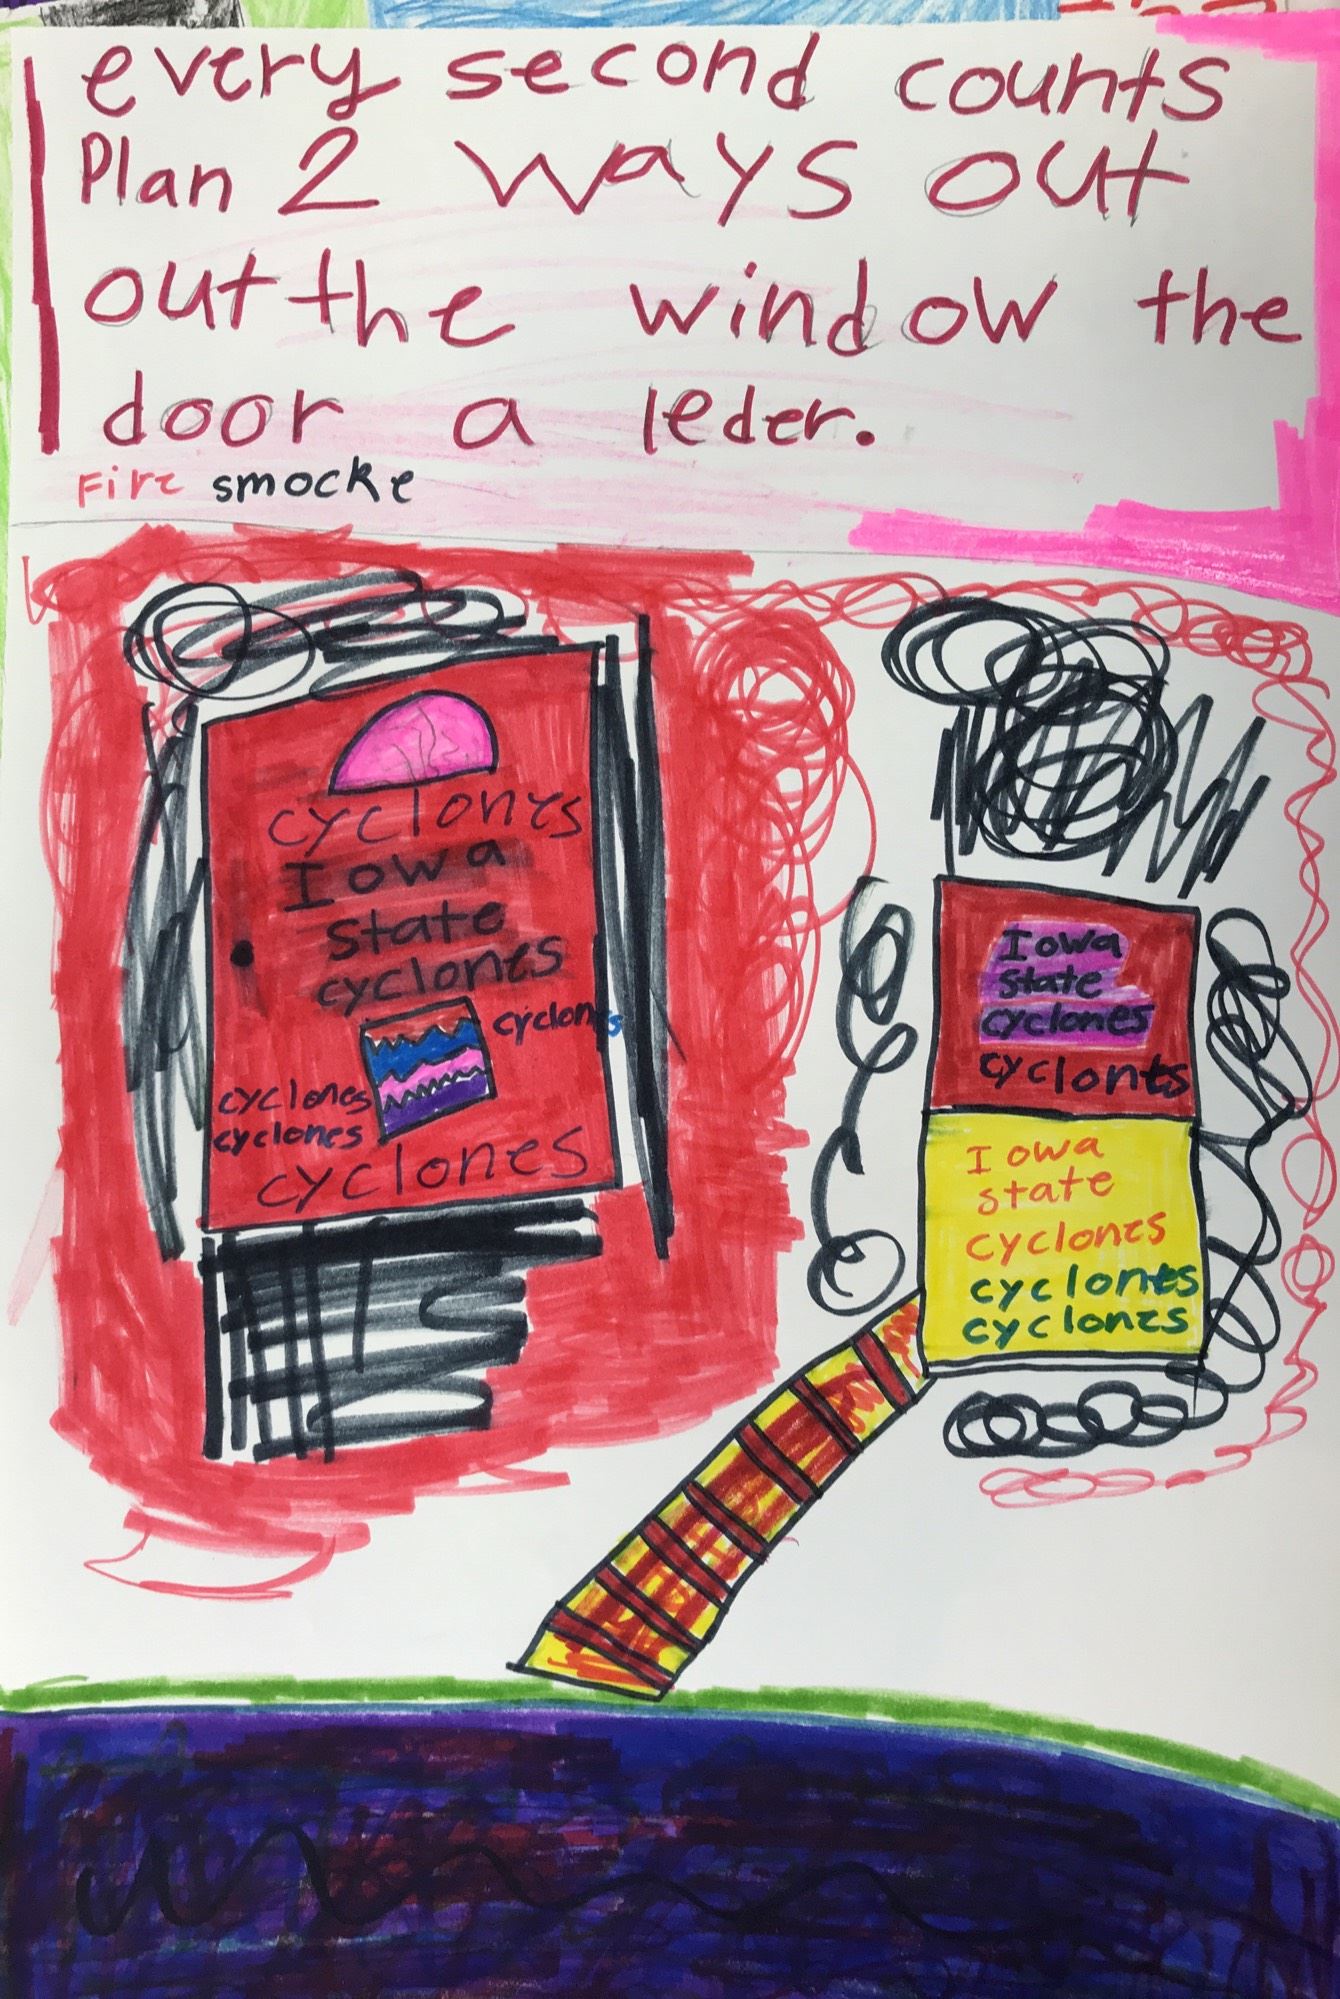 every second counts
Plan 2 ways out
out the window the
door a leder.
Fire smocke
cyclones
Iowa
state
cyclones
cyclones
cyclones
cyclones
cyclones
Iowa
state
cyclones
cyclones
Iowa
state
cyclones
cyclones
cyclones